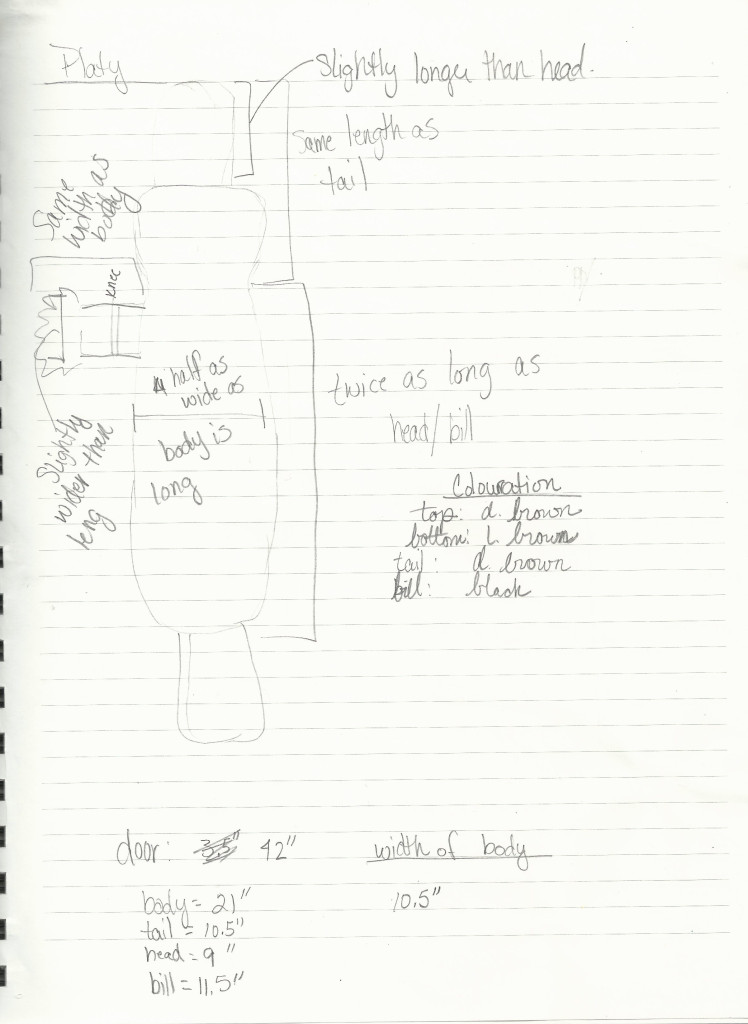 Platy
Slightly longer than head.
same length as
tail
Same
width as
body
knee
half as
wide as
body is
long
twice as long as
head/bill
slightly
wider than
leng
Colouration
top: d. brown
bottom: L. brown
tail: d. brown
bill: black
door: 35" 42"
width of body
body = 21"
10.5"
tail = 10.5"
head = 9"
bill = 11.5"